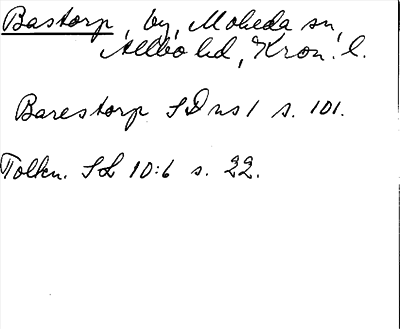 Bastorp, by, Moheda sn,
Allbo hd, Kron. l.
Barestorp SDns 1 s. 101.
Tolkn. SL 10:6 s. 22.